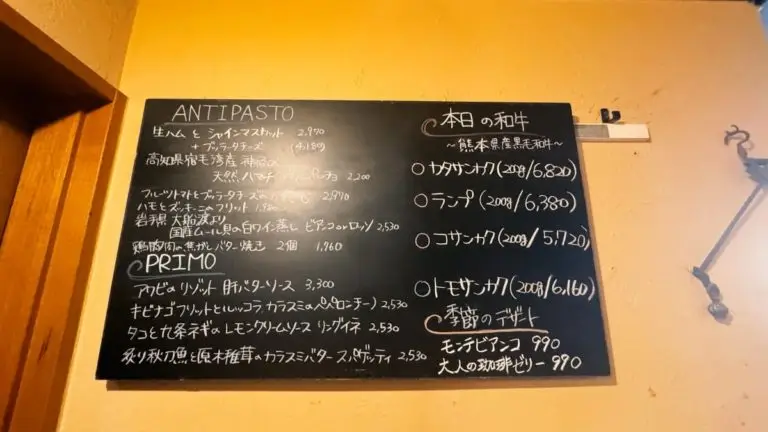 ANTIPASTO
生ハム と シャインマスカット 2,970
+ ブッラータチーズ (4,180)
高知県宿毛湾産 神
天然ハマチ 2,200
フルーツトマトとブッラータチーズの 2,970
ハモとズッキーニのフリット
岩手県 大船渡より
国産ムール貝の白ワイン蒸し ビアンコ or ロッソ 2,530
鶏 肉の焦がしバター焼き 2個 1,760
PRIMO
アワビのリゾット 肝バターソース 3,300
キビナゴフリットとルッコラ カラスミのペペロンチーノ 2,530
タコと九条ネギのレモンクリームソース リングイネ 2,530
炙り秋刀魚と原木椎茸のカラスミバター スパゲッティ 2,530
本日の和牛
~熊本県産黒毛和牛~
○カタサンカク(200g/6,820)
○ランプ(200g/6,380)
○コサンカク(200g/5,720)
○トモサンカク(200g/6,160)
季節のデザート
モンテビアンコ 990
大人の珈琲ゼリー 990